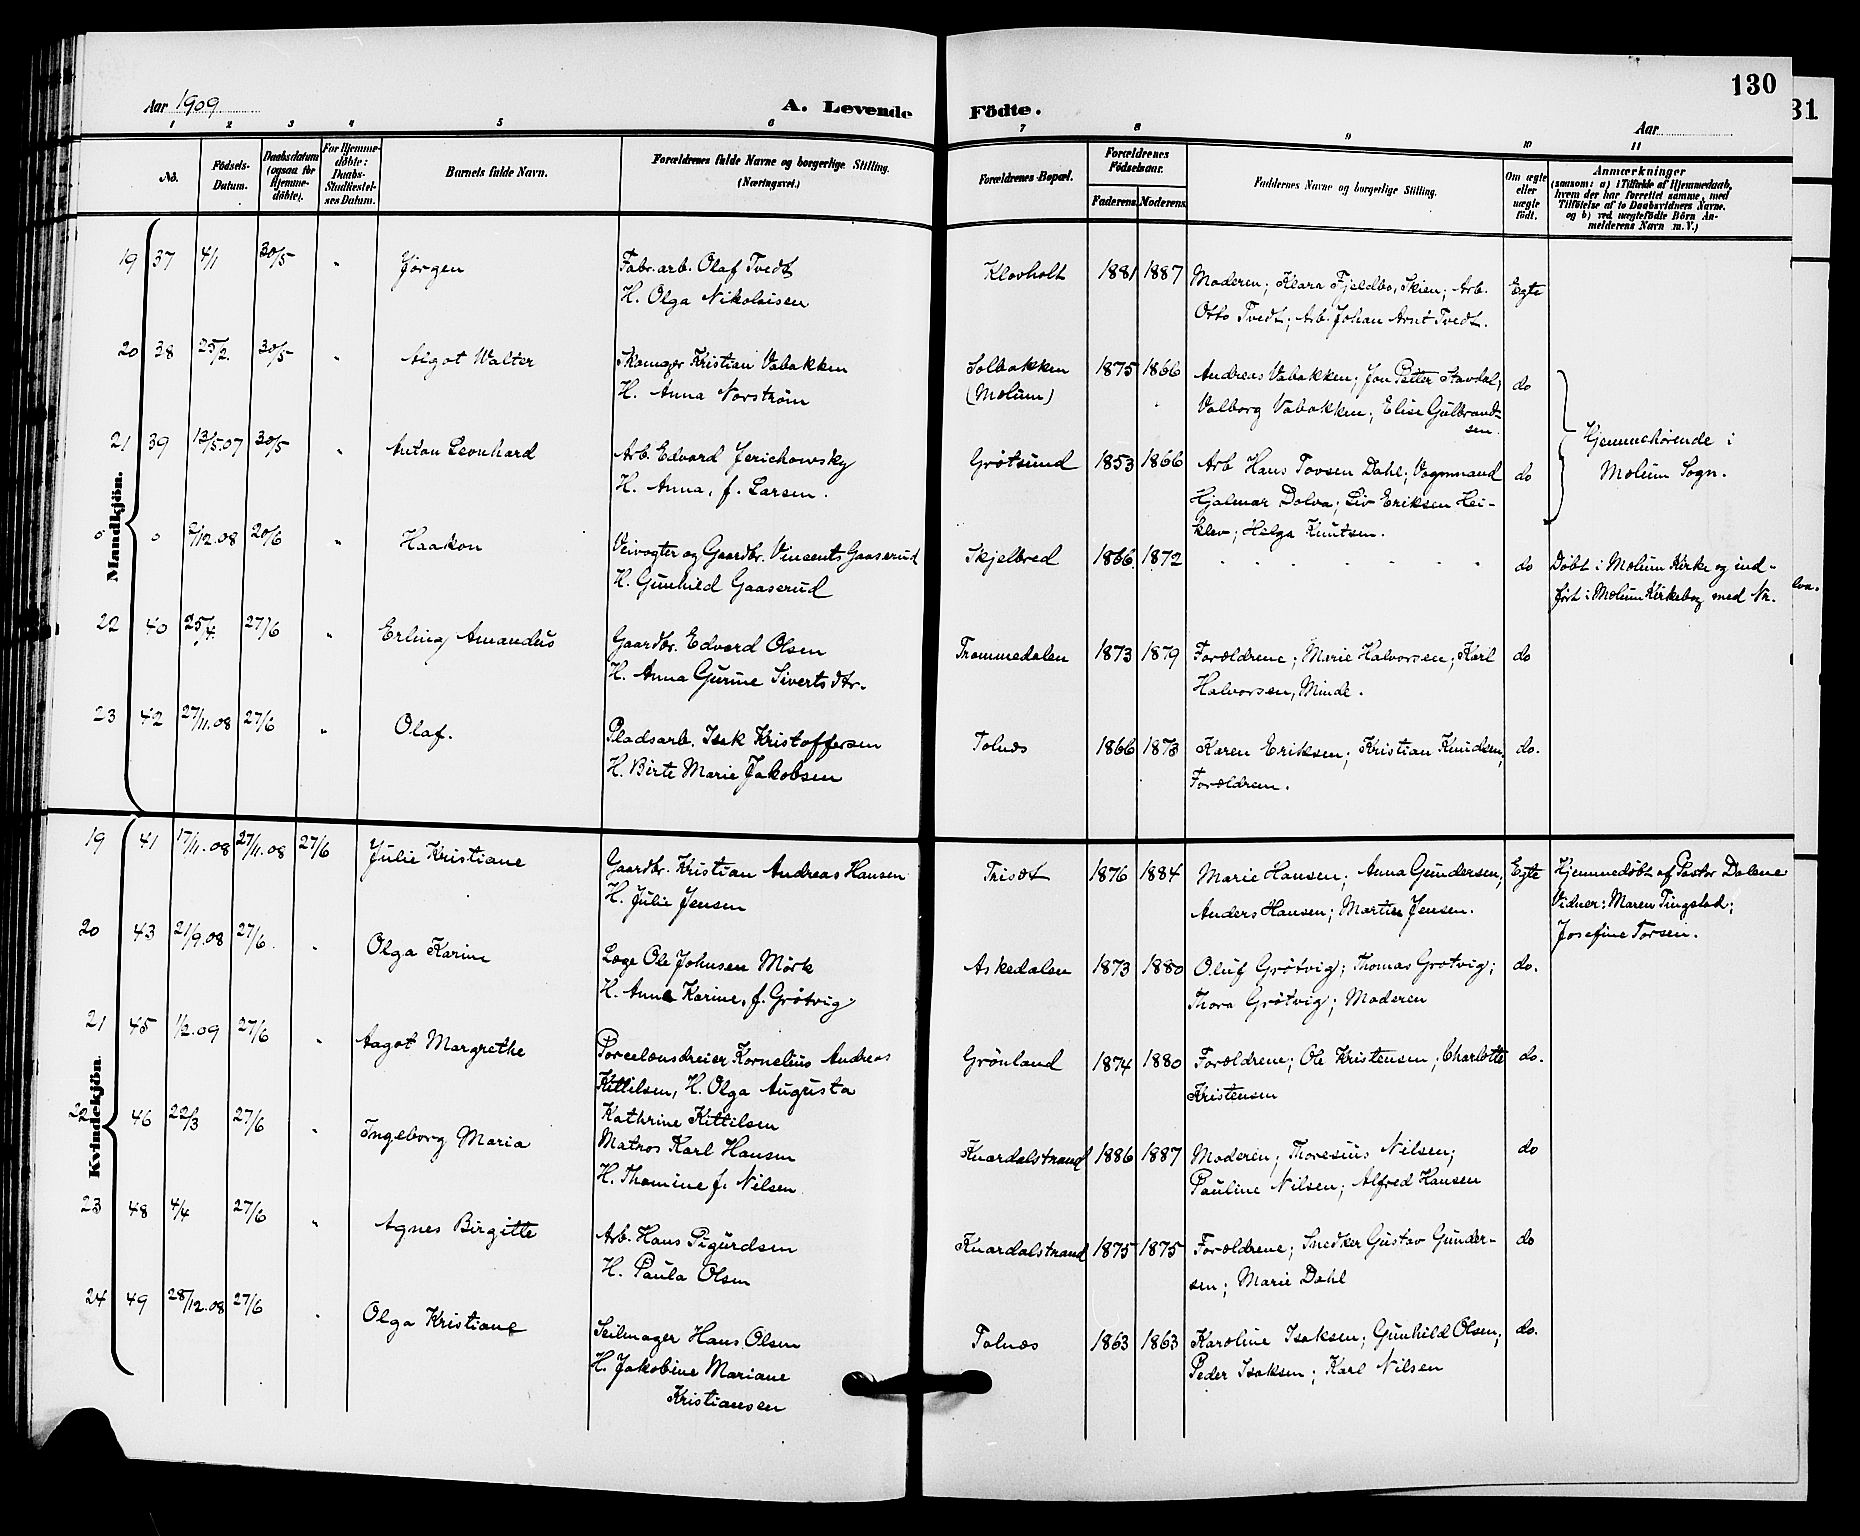 130
31
Aar 1909
A. Levende Födte.
Aar
1 2 3 4 5 6 7 8 9 10 11
No.
Födsels-Datum.
Daabsdatum (ogsaa for Hjemme-döbte).
For Hjemme-döbte: Daabs-Stadfæstel-ses Datum.
Barnets fulde Navn.
Forældrenes fulde Navne og borgerlige Stilling.
(Næringsvei.)
Forældrenes Bopæl.
Forældrenes Födselsaar.
Faderens. Moderens.
Faddernes Navne og borgerlige Stilling.
Om ægte eller uægte födt.
Anmærkninger
(saasom: a) i Tilfælde af Hjemmedaab,
hvem der har forrettet samme, med
Tilföielse af to Daabsvidners Navne.
og b) ved uægtefödte Börn An-
melderens Navn m. V.)
Mandkjön.
19 37 4/1 30/5 " Jörgen Fabr.arb. Olaf Tvedt Klovholt 1881 1887 Moderen; Klara Fjeldbo, Skien; Arb. Egte
H. Olga Nikolaisen Otto Tvedt; Arb. Johan Arnt Tvedt.
20 38 25/2 30/5 " Aigot Walter Skomager Kristian Vabakken Solbakken 1875 1866 Andreas Vabakken; Jon Petter Stavdal; do
H. Anna Norström (Molum) Valborg Vabakken; Elise Gulbrand-
sen.
Hjemmehørende i
Molum Sogn.
21 39 13/5.07 30/5 " Anton Leonhard Arb. Edvard Jerichowsky Grøtsund 1853 1866 Arb Hans Tovsen Dahl; Vognmand do
H. Anna, f. Larsen. Hjalmar Dolva; Liv Eriksen Hei-
klev; Helga Knutsen.
o o /12.08 20/6 " Haakon Veivogter og Gaardbr. Vincents Gaaserud Skjelbred 1866 1872 " " " do Døbt i Molum Kirke og ind-
H. Gunhild Gaaserud ført i Molum Kirkebog med Nr.
22 40 25/4 27/6 " Erling Amandus Gaardbr. Edvard Olsen Trommedalen 1873 1879 Forældrene; Marie Halvorsen; Karl do
H. Anna Gurine Sivertsdtr. Halvorsen, Minde.
23 42 27/11.08 27/6 " Olaf. Pladsarb. Isak Kristoffersen Tolnæs 1866 1873 Karen Eriksen; Kristian Knudsen; do.
H. Birte Marie Jakobsen Forældrene.
Kvindekjön.
19 41 17/11.08 27/11.08 27/6 Julie Kristiane Gaardbr. Kristian Andreas Hansen Trisæt 1876 1884 Marie Hansen; Anna Gundersen; Egte Hjemmedøbt af Pastor Dalene
H. Julie Jensen Anders Hansen; Martin Jensen. Vidner: Maren Tingstad;
Josefine Torsen.
20 43 21/9.08 27/6. " Olga Karine Læge Ole Johnsen Mörk Askedalen 1873 1880 Oluf Grötvig; Thomas Grotvig; do.
H. Anna Karine, f. Grötvig Thora Grötvig; Moderen
21 45 1/2.09 27/6 " Aagot Margrethe Porcelænsdreier Kornelius Andreas Grönland 1874 1880 Forældrene; Ole Kristensen; Charlotte do.
Kittilsen, H. Olga Augusta Kristensen
Kathrine Kittilsen
22 46 22/3 27/6 " Ingeborg Maria Matros Karl Hansen Knardalstrand 1886 1887 Moderen; Thoresius Nilsen; do
H. Thomine f. Nilsen Pauline Nilsen; Alfred Hansen
23 48 4/4 27/6 " Agnes Birgitte Arb. Hans Sigurdsen Knardalstrand 1875 1875 Forældrene; Snedker Gustav Gunder- do
H. Paula Olsen sen; Marie Dahl
24 49 28/12.08 27/6 " Olga Kristiane Seilmager Hans Olsen Tolnæs 1863 1863 Karoline Isaksen; Gunhild Olsen; do.
H. Jakobine Mariane Peder Isaksen; Karl Nilsen
Kristiansen